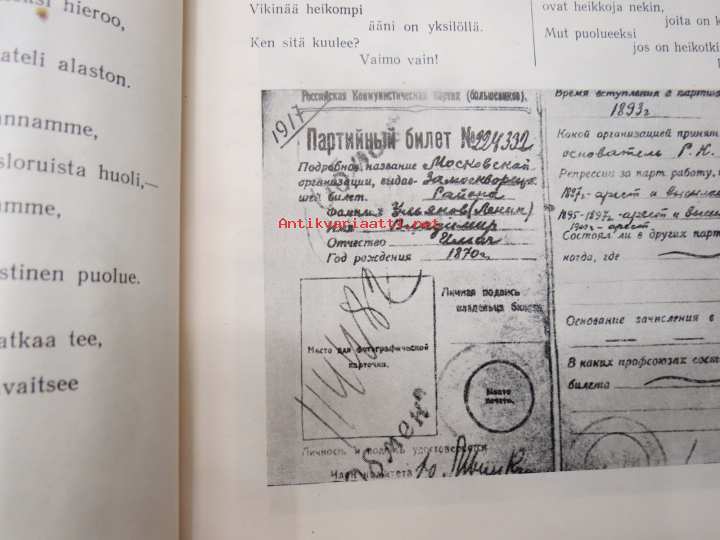 hieroo,
ateli alaston.
annamme,
sloruista huoli,—
amme,
stinen puolue.
atkaa tee,
vaitsee
Vikinää heikompi
ääni on yksilöllä.
Ken sitä kuulee?
Vaimo vain!
ovat heikkoja nekin,
joita on k
Mut puolueeksi
jos on heikotki
Россійская Коммунистическая партія (большевиков).
1917
Партийный билет №224332
Подробное название Московской
организации, выдав- Замоскворецк
шей билет. Района
Фамилия Ульянов (Ленин)
Имя Владимир
Отчество Ильич
Год рождения 1870г.
Antikvariaatti.net
Личная подпись
владельца билета
Место для фотографической
карточки.
Место
печати.
Обмен
Личность и подпись удостоверяется
Член комитета
Время вступления в партию
1893г
Какой организацией принят
основатель Р.К.
Репрессии за парт. работу,
Состоял ли в других парт
когда, где
Основание зачисления в
В каких профсоюзах сост
билета